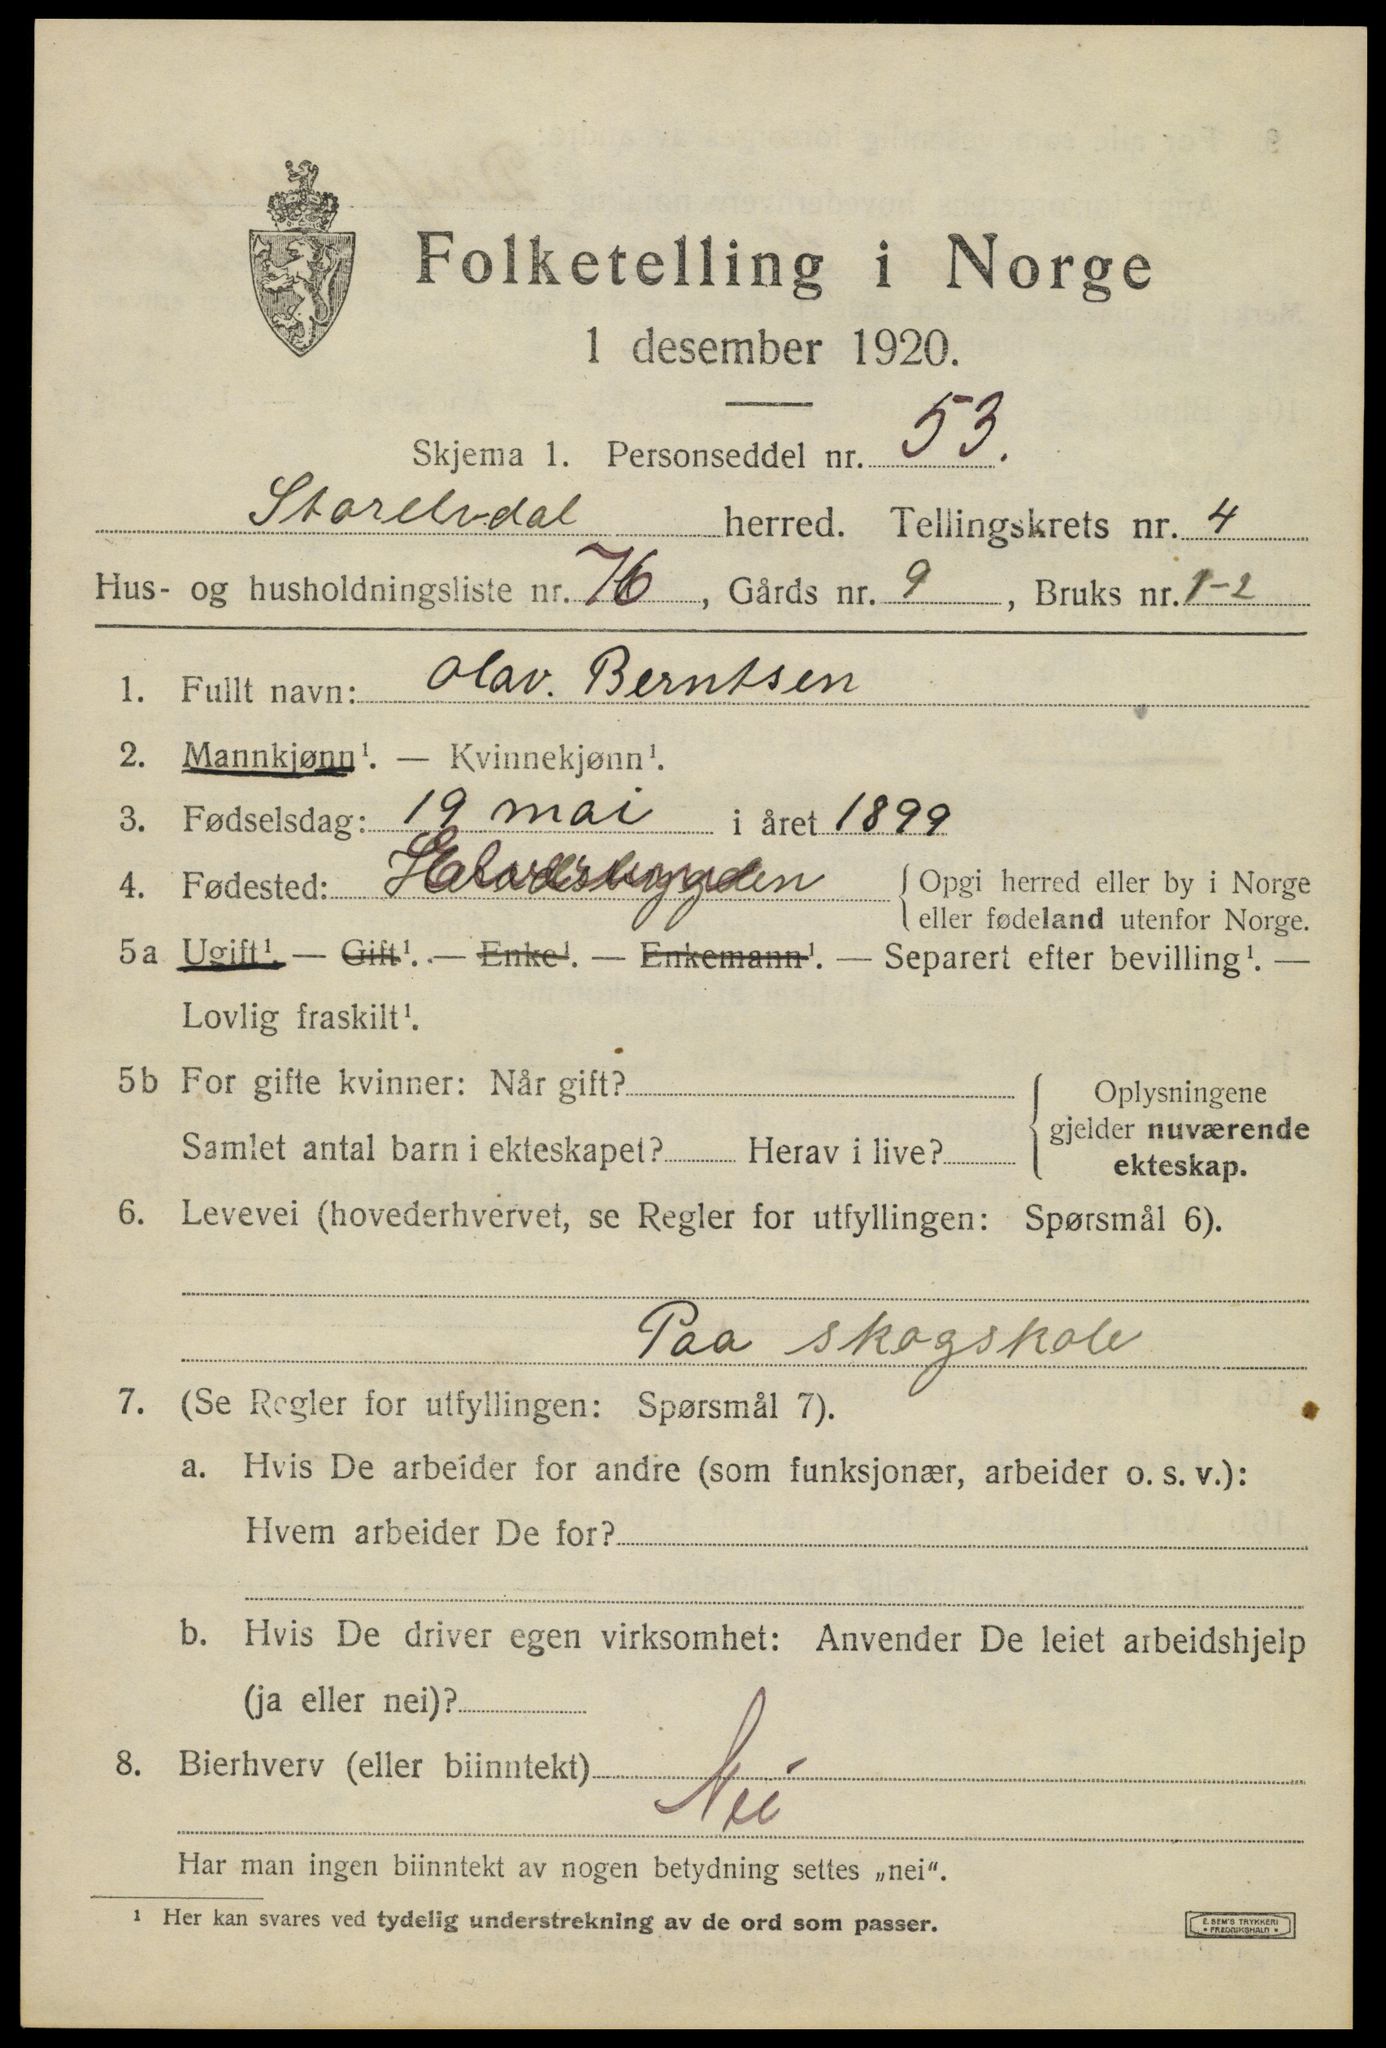 Folketelling i Norge
1 desember 1920.
Skjema 1. Personseddel nr. 53.
Storelvdal herred. Tellingskrets nr. 4
Hus- og husholdningsliste nr. 76, Gårds nr. 9, Bruks nr. 1-2
1. Fullt navn: Olav. Berntsen
2. Mannkjønn¹. — Kvinnekjønn¹.
3. Fødselsdag: 19 mai i året 1899
4. Fødested: { Opgi herred eller by i Norge
eller fødeland utenfor Norge.
5a Ugift¹. — Gift¹. — Enke¹. — Enkemann¹. — Separert efter bevilling¹. —
Lovlig fraskilt¹.
5b For gifte kvinner: Når gift?
Samlet antal barn i ekteskapet? Herav i live?
Oplysningene
gjelder nuværende
ekteskap.
6. Levevei (hovederhvervet, se Regler for utfyllingen: Spørsmål 6).
Paa skogskole
7. (Se Regler for utfyllingen: Spørsmål 7).
a. Hvis De arbeider for andre (som funksjonær, arbeider o. s. v.):
Hvem arbeider De for?
b. Hvis De driver egen virksomhet: Anvender De leiet arbeidshjelp
(ja eller nei)?
8. Bierhverv (eller biinntekt) Nei
Har man ingen biinntekt av nogen betydning settes „nei“.
¹ Her kan svares ved tydelig understrekning av de ord som passer.
E. SEM'S TRYKKERI
• FREDRIKSHALD •